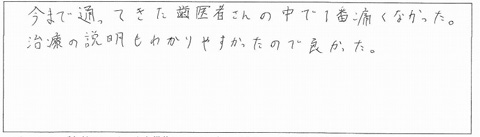 今まで通ってきた歯医者さんの中で1番痛くなかった。
治療の説明もわかりやすかったので良かった。